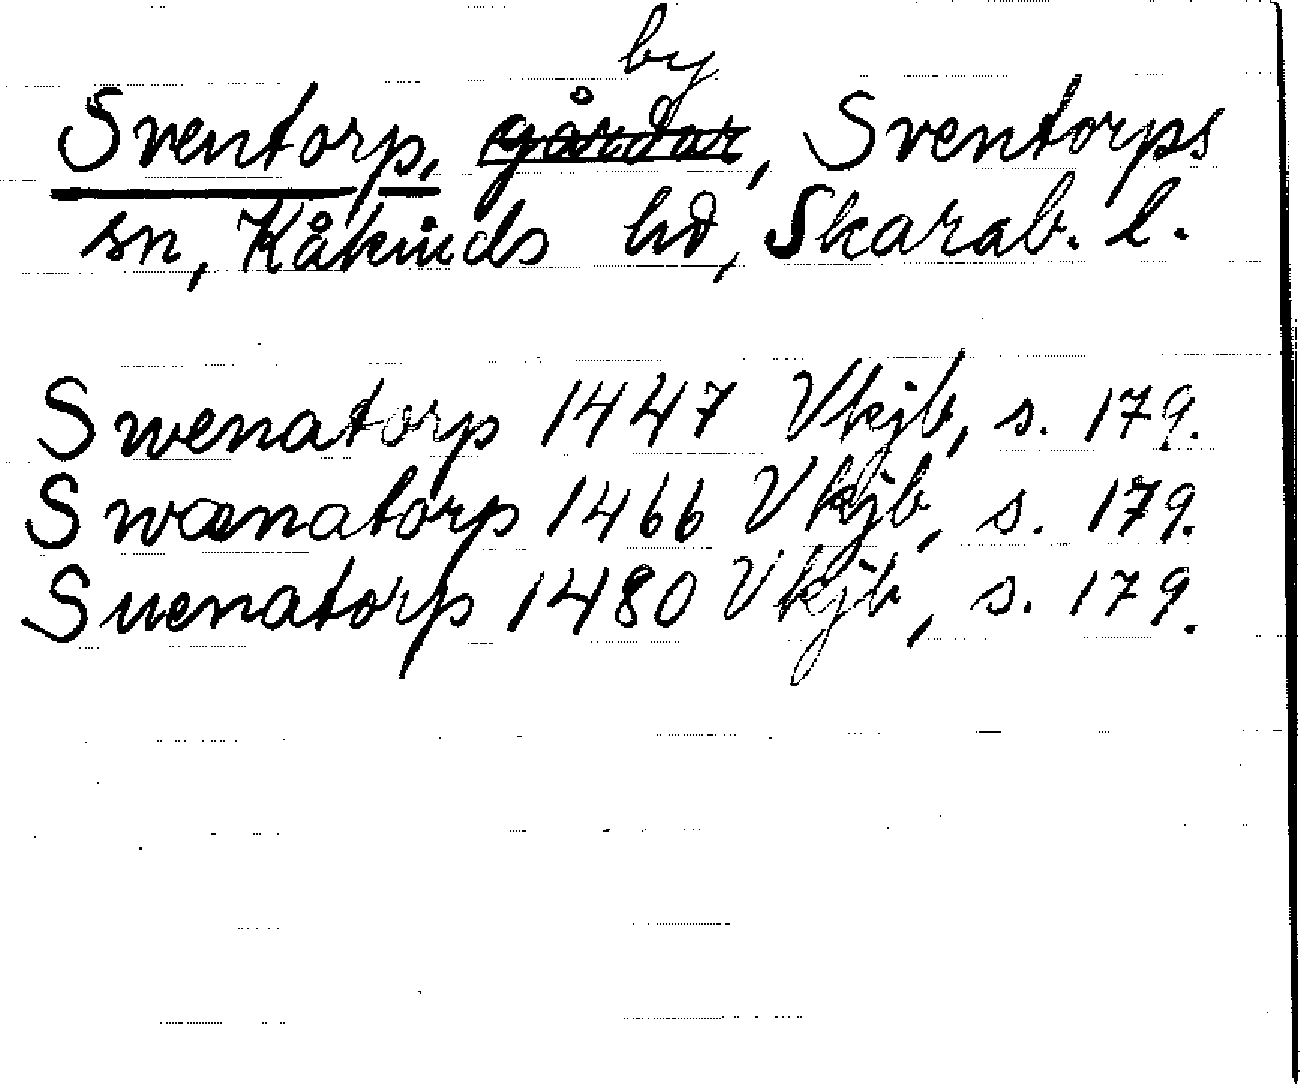 by
Sventorp, gårdar, Sventorps
sn, Kåkinds hd, Skarab. l.
Swenatorp 1447 Vkjb, s. 179.
Swænatorp 1466 Vkjb, s. 179.
Suenatorp 1480 Vkjb, s. 179.